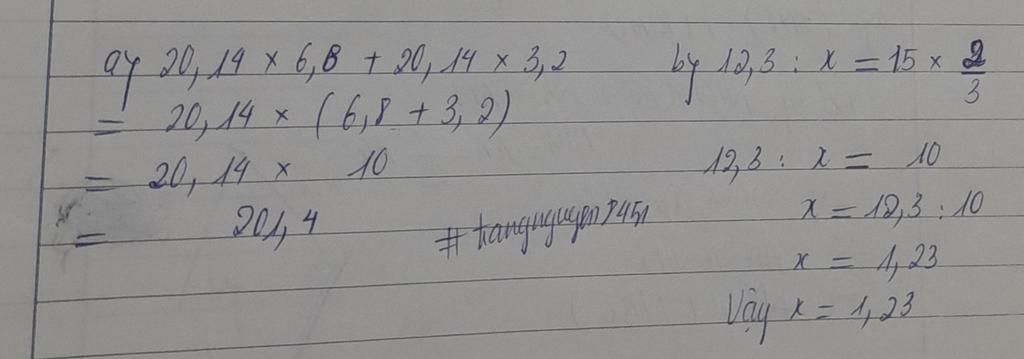 a) 20,14 × 6,8 + 20,14 × 3,2
= 20,14 × (6,8 + 3,2)
= 20,14 × 10
= 201,4
b) 12,3 : x = 15 × 2/3
12,3 : x = 10
x = 12,3 : 10
x = 1,23
Vậy x = 1,23